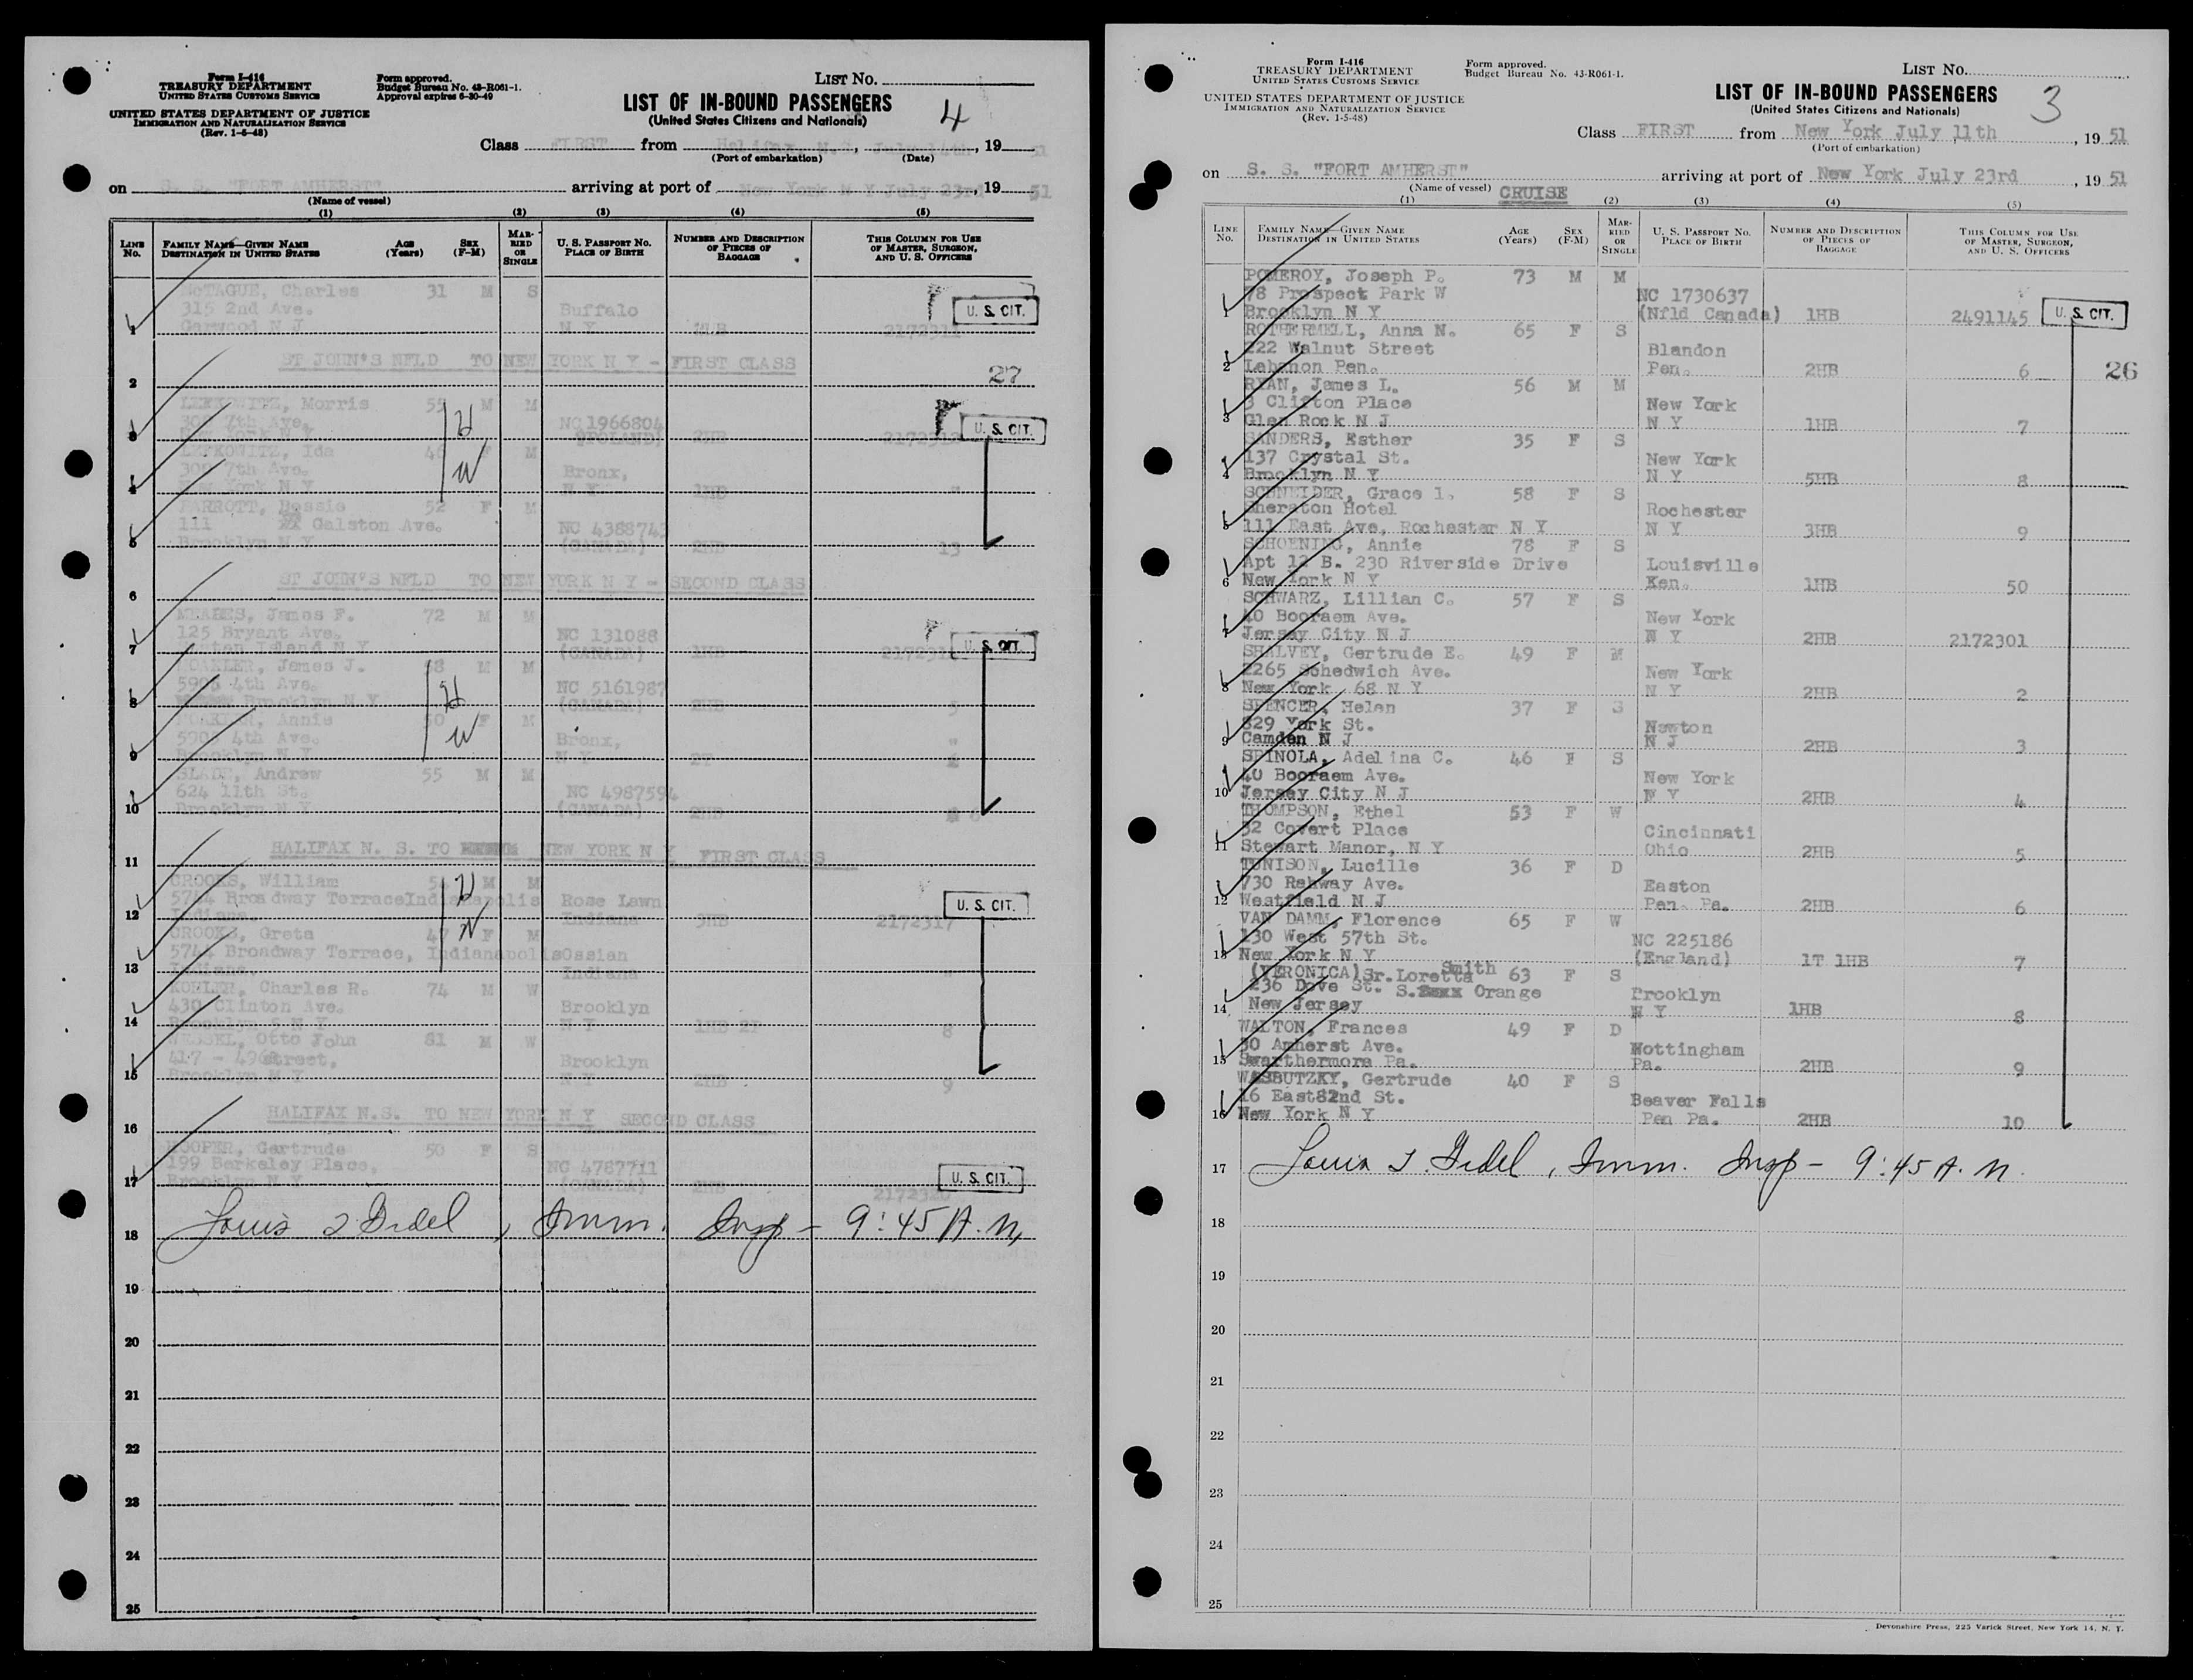 Form I-416
TREASURY DEPARTMENT
UNITED STATES CUSTOMS SERVICE
UNITED STATES DEPARTMENT OF JUSTICE
IMMIGRATION AND NATURALIZATION SERVICE
(Rev. 1-5-48)
Form approved.
Budget Bureau No. 43-R061-1.
Approval expires 6-30-49
LIST NO.
LIST OF IN-BOUND PASSENGERS
(United States Citizens and Nationals)
4
Class FIRST from Halifax, N.S., July 14th, 19 51
(Port of embarkation) (Date)
on S. S. "FORT AMHERST" arriving at port of New York N Y July 23rd, 19 51
(Name of vessel)
(1) (2) (3) (4) (5)
LINE No.
FAMILY NAME—GIVEN NAME
DESTINATION IN UNITED STATES
AGE (Years)
SEX (F-M)
MARRIED OR SINGLE
U. S. PASSPORT NO.
PLACE OF BIRTH
NUMBER AND DESCRIPTION OF PIECES OF BAGGAGE
THIS COLUMN FOR USE OF MASTER, SURGEON, AND U. S. OFFICERS
McTAGUE, Charles 31 M S
315 2nd Ave. Buffalo U. S. CIT.
1 Garwood N J N Y
ST JOHN'S NFLD TO NEW YORK N Y - FIRST CLASS
2 27
LEFKOWITZ, Morris 55 M M H
300 7th Ave. NC 1966804 U. S. CIT.
3 New York N Y (POLAND) 2HB
LEFKOWITZ, Ida 46 F M W
300 7th Ave. Bronx,
4 New York N Y N Y 1HB
PARROTT, Bessie 52 F M
111 Galston Ave. NC 4388743
5 Brooklyn N Y (CANADA) 2HB 13
ST JOHN'S NFLD TO NEW YORK N Y - SECOND CLASS
6
MEARES, James F. 72 M M
125 Bryant Ave. NC 131088 U. S. CIT.
7 Staten Island N Y (CANADA) 1HB
James J. M M H
5905 4th Ave. NC 5161987
8 Brooklyn N Y (CANADA) 2HB 5
Annie 50 F M W
5905 4th Ave. Bronx,
9 Brooklyn N Y N Y 2T
SLADE, Andrew 55 M M
624 11th St. NC 4987594
10 Brooklyn N Y (CANADA) 2HB 6
HALIFAX N. S. TO NEW YORK N Y FIRST CLASS
11
CROOKS, William M M H
5744 Broadway Terrace Indianapolis Rose Lawn U. S. CIT.
12 Indiana. Indiana 3HB 2172317
CROOKS, Greta 47 F M W
5744 Broadway Terrace, Indianapolis Ossian
13 Indiana. Indiana
KOHLER, Charles R. 74 M W
430 Clinton Ave. Brooklyn
14 Brooklyn N Y N Y 1HB 2P 8
WESSEL, Otto John 81 M W
417 - 49 street, Brooklyn
15 Brooklyn N Y N Y 2HB 9
HALIFAX N.S. TO NEW YORK N Y SECOND CLASS
16
HOOPER, Gertrude 50 F S
199 Berkeley Place, NC 4787711 U. S. CIT.
17 Brooklyn N Y (CANADA) 2HB 2172320
18 Louis J Fidel, Imm. Insp - 9:45 A.M.
19
20
21
22
23
24
25
Form I-416
TREASURY DEPARTMENT
UNITED STATES CUSTOMS SERVICE
UNITED STATES DEPARTMENT OF JUSTICE
IMMIGRATION AND NATURALIZATION SERVICE
(Rev. 1-5-48)
Form approved.
Budget Bureau No. 43-R061-1.
LIST NO.
LIST OF IN-BOUND PASSENGERS
(United States Citizens and Nationals)
3
Class FIRST from New York July 11th, 19 51
(Port of embarkation)
on S. S. "FORT AMHERST" arriving at port of New York July 23rd, 19 51
(Name of vessel) CRUISE
(1) (2) (3) (4) (5)
LINE No.
FAMILY NAME—GIVEN NAME
DESTINATION IN UNITED STATES
AGE (Years)
SEX (F-M)
MARRIED OR SINGLE
U. S. PASSPORT NO.
PLACE OF BIRTH
NUMBER AND DESCRIPTION OF PIECES OF BAGGAGE
THIS COLUMN FOR USE OF MASTER, SURGEON, AND U. S. OFFICERS
POMEROY, Joseph P. 73 M M
78 Prospect Park W NC 1730637
1 Brooklyn N Y (Nfld Canada) 1HB 2491145 U. S. CIT.
ROTHERMELL, Anna N. 65 F S
222 Walnut Street Blandon
2 Lebanon Pen. Pen. 2HB 6 26
RYAN, James L. 56 M M
3 Clifton Place New York
3 Glen Rock N J N Y 1HB 7
SANDERS, Esther 35 F S
137 Crystal St. New York
4 Brooklyn N Y N Y 5HB 8
SCHNEIDER, Grace l. 58 F S
Sheraton Hotel Rochester
5 111 East Ave, Rochester N Y N Y 3HB 9
SCHOENING, Annie 78 F S
Apt 12 B. 230 Riverside Drive Louisville
6 New York N Y Ken. 1HB 50
SCHWARZ, Lillian C. 57 F S
40 Booraem Ave. New York
7 Jersey City N J N Y 2HB 2172301
SHALVEY, Gertrude E. 49 F M
2265 Schedwich Ave. New York
8 New York 68 N Y N Y 2HB 2
SPENCER, Helen 37 F S
829 York St. Newton
9 Camden N J N J 2HB 3
SPINOLA, Adelina C. 46 F S
40 Booraem Ave. New York
10 Jersey City N J N Y 2HB 4
THOMPSON, Ethel 53 F W
32 Covert Place Cincinnati
11 Stewart Manor, N Y Ohio 2HB 5
TUNISON, Lucille 36 F D
730 Rahway Ave. Easton
12 Westfield N J Pen. Pa. 2HB 6
VAN DAMM, Florence 65 F W
130 West 57th St. NC 225186
13 New York N Y (England) 1T 1HB 7
(VERONICA) Sr. Loretta Smith 63 F S
236 Dove St. S. Orange Brooklyn
14 New Jersey N Y 1HB 8
WALTON, Frances 49 F D
30 Amherst Ave. Nottingham
15 Swarthermore Pa. Pa. 2HB 9
WASBUTZKY, Gertrude 40 F S
16 East 82nd St. Beaver Falls
16 New York N Y Pen Pa. 2HB 10
17 Louis J. Fidel, Imm. Insp - 9:45 A.M.
18
19
20
21
22
23
24
25
Devonshire Press, 225 Varick Street, New York 14, N. Y.